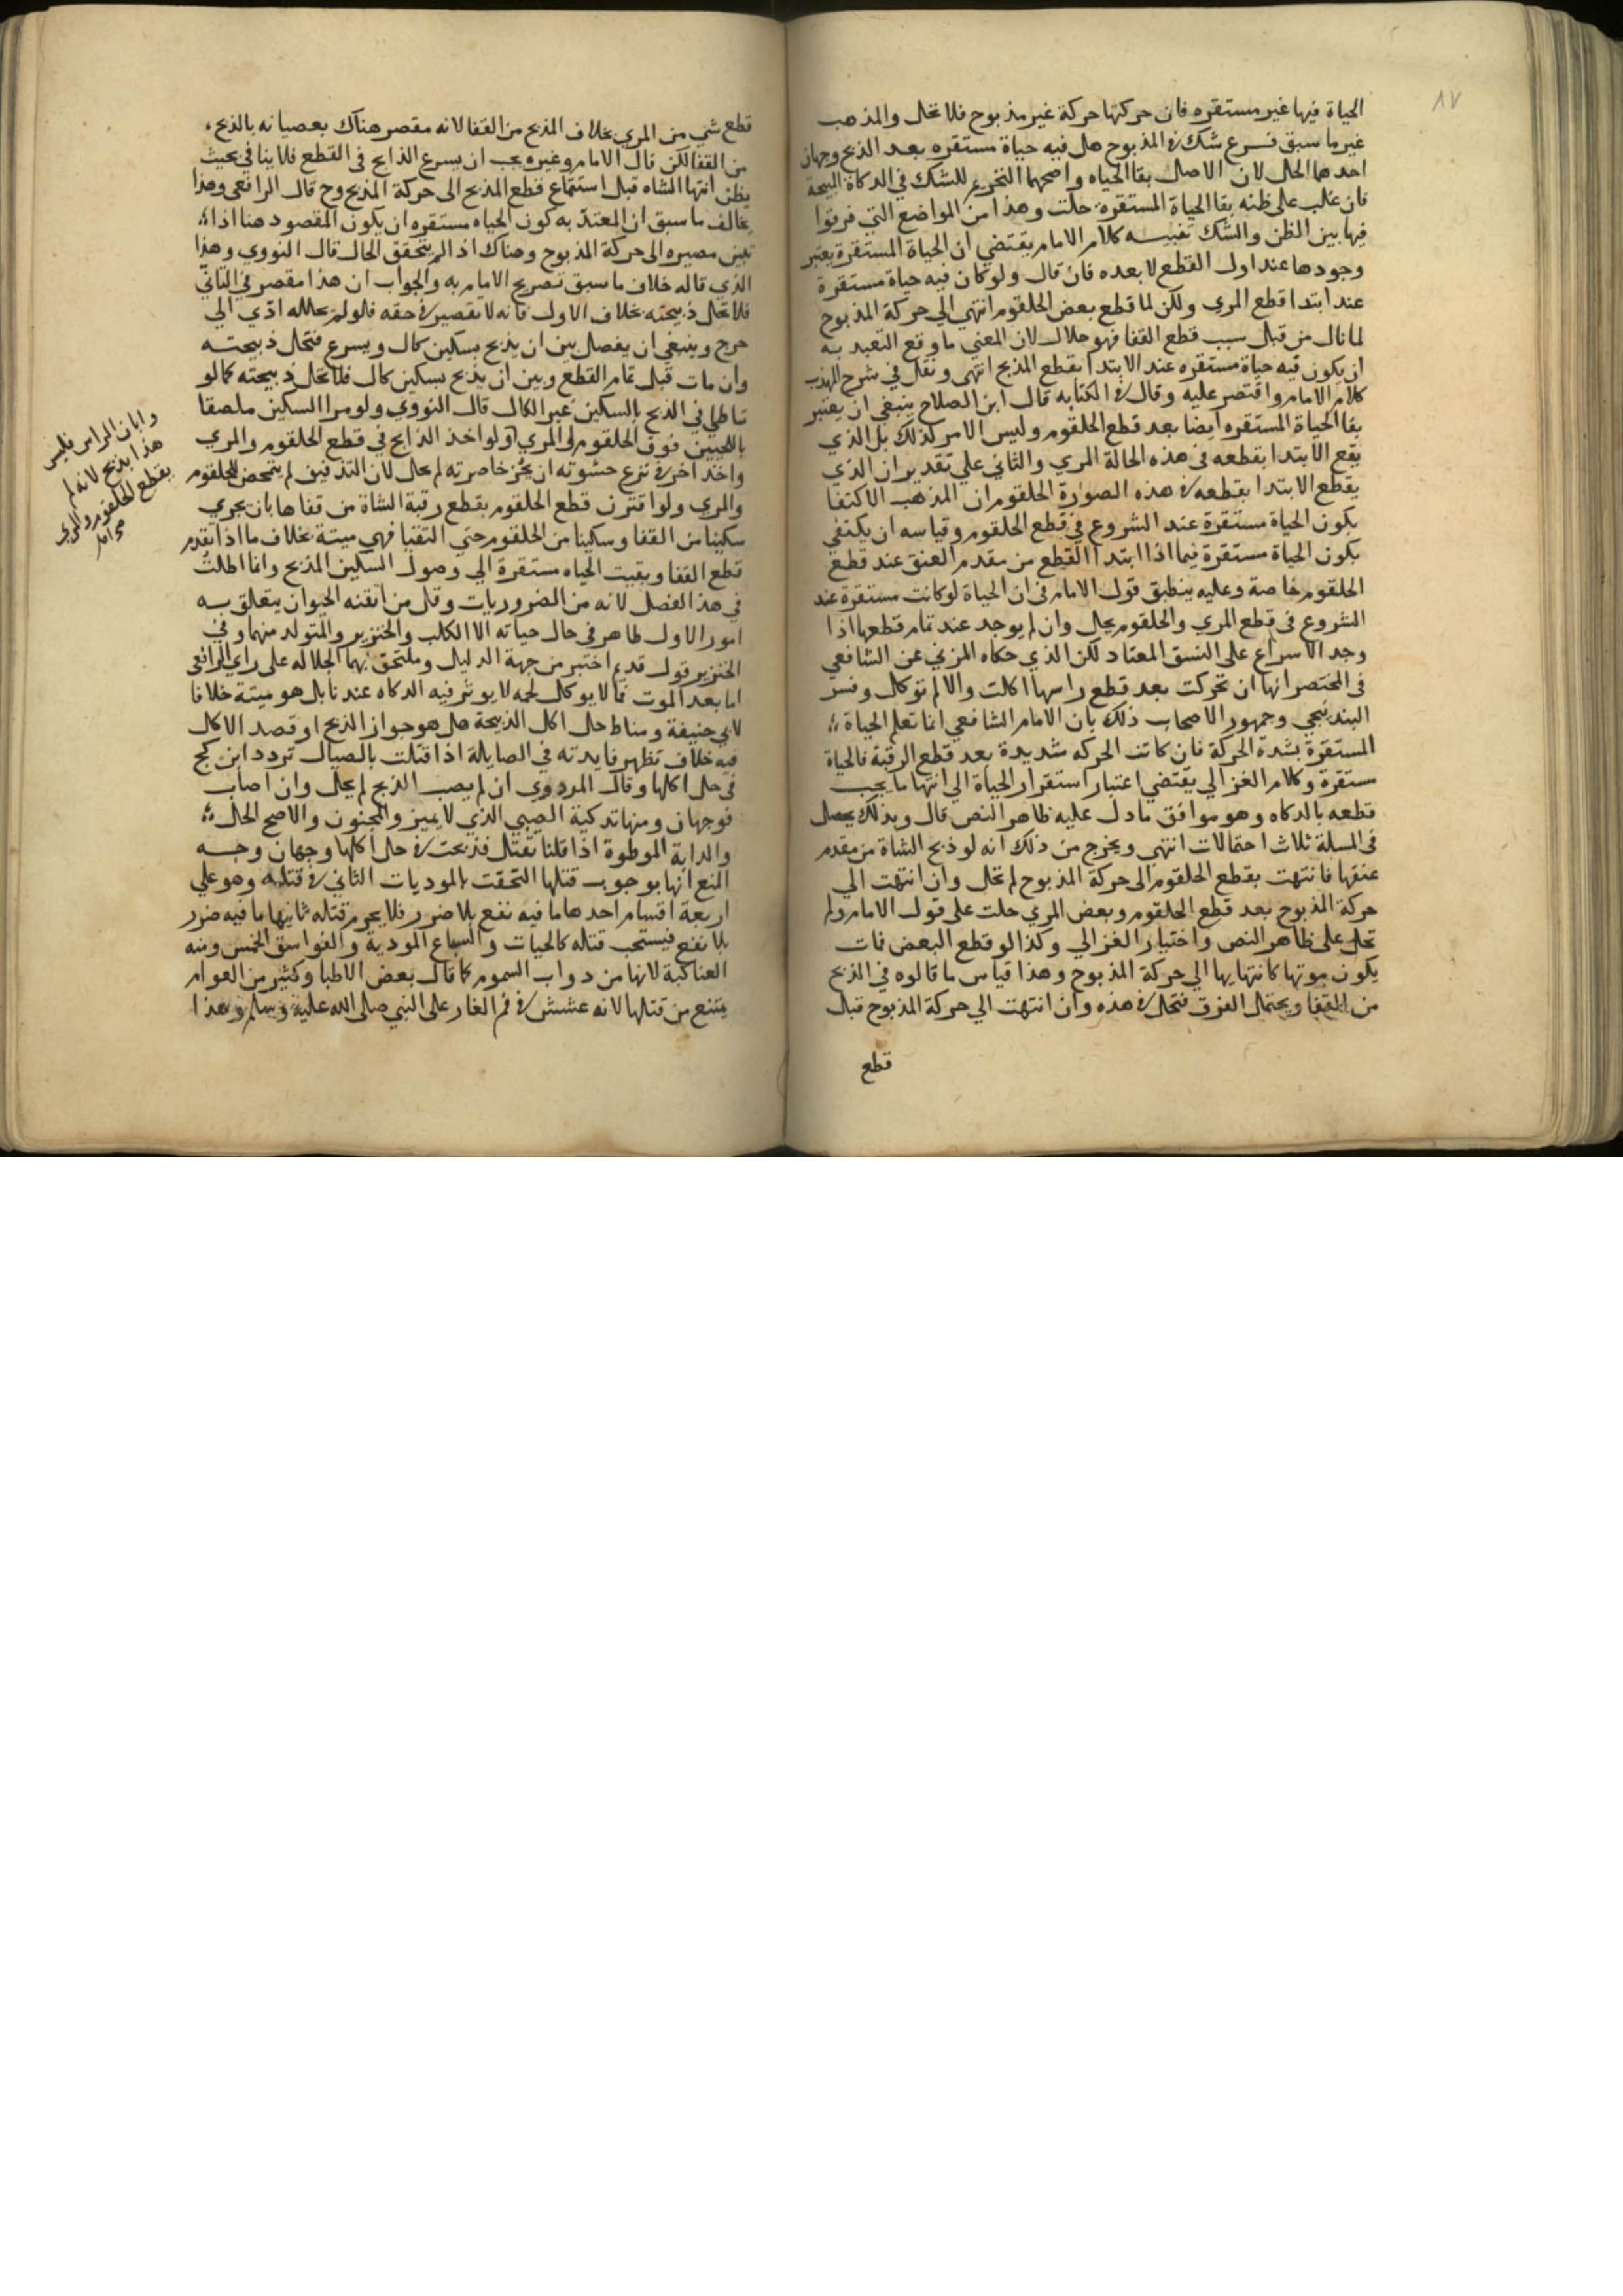 ١٧
الحياة فيها غير مستقره فان حركتها حركة غير مذبوح فلا تحل والمذهب
غير ما سبق فرع شك في المذبوح هل فيه حياة مستقره بعد الذبح وجهان
احدهما الحل لان الاصل بقا الحياه واصحهما التحريم للشك في الذكاة المبيحة
فان غلب على ظنه بقا الحياة المستقرة حلت وهذا من المواضع التي فرقوا
فيها بين الظن والشك تنبيه كلام الامام يقتضي ان الحياة المستقرة يعتبر
وجودها عند اول القطع لا بعده فان قال ولو كان فيه حياة مستقرة
عند ابتدا قطع المري ولكن لما قطع بعض الحلقوم انتهي الي حركة المذبوح
لما نال من قبل سبب قطع القفا فهو حلال لان المعني ما وقع التعبد به
ان يكون فيه حياة مستقره عند الابتدا بقطع المذبح انتهى ونقل في شرح المهذب
كلام الامام واقتصر عليه وقال في الكتابه قال ابن الصلاح ينبغي ان يعتبر
بقا الحياة المستقره ايضا بعد قطع الحلقوم وليس الامر كذلك بل الذي
يقع الابتدا بقطعه في هذه الحالة المري والثاني علي تقدير ان الذي
يقطع الابتدا بقطعه في هذه الصورة الحلقوم ان المذهب الاكتفا
بكون الحياة مستقرة عند الشروع في قطع الحلقوم وقياسه ان يكتفي
بكون الحياة مستقرة فيما اذا ابتدا القطع من مقدم العنق عند قطع
الحلقوم خاصة وعليه ينطبق قول الامام في ان الحياة لو كانت مستقرة عند
الشروع في قطع المري والحلقوم يحل وان لم يوجد عند تمام قطعها اذا
وجد الاسراع على النسق المعتاد لكن الذي حكاه المزني عن الشافعي
في المختصر انها ان تحركت بعد قطع راسها اكلت والا لم توكل وفسر
البندنيجي وجمهور الاصحاب ذلك بان الامام الشافعي انما تعلم الحياة
المستقرة بشدة الحركة فان كانت الحركه شديدة بعد قطع الرقبة فالحياة
مستقرة وكلام الغزالي يقتضي اعتبار استقرار الحياة الي انتها ما يجب
قطعه بالذكاه وهو موافق ما دل عليه ظاهر النص قال وبذلك يحصل
في المسلة ثلاث احتمالات انتهي ويخرج من ذلك انه لو ذبح الشاة من مقدم
عنقها فانتهت بقطع الحلقوم الى حركة المذبوح لم تحل وان انتهت الي
حركة المذبوح بعد قطع الحلقوم وبعض المري حلت على قول الامام ولم
تحل على ظاهر النص واختيار الغزالي وكذا لو قطع البعض فمات
يكون موتها كانتهايها الي حركة المذبوح وهذا قياس ما قالوه في الذبح
من القفا ويحتمل الفرق فتحل في هذه وان انتهت الي حركة المذبوح قبل
قطع
قطع شي من المري بخلاف المذبح من القفا لانه مقصر هناك بعصيانه بالذبح
من القفا لكن قال الامام وغيره يجب ان يسرع الذابح في القطع فلا يتانى بحيث
يظن انتها الشاه قبل استتمام قطع المذبح الى حركة المذبوح قال الرافعي وهذا
يخالف ما سبق ان المعتد به كون الحياه مستقره ان يكون المقصود هنا اذا
تبين مصيره الى حركة المذبوح وهناك اذا لم يتحقق الحال قال النووي وهذا
الذي قاله خلاف ما سبق تصريح الامام به والجواب ان هذا مقصر في التاني
فلا تحل ذبيحته بخلاف الاول فانه لا تقصير في حقه فلو لم نحلله ادي الي
حرج وينبغي ان يفصل بين ان يذبح بسكين كال ويسرع فتحل ذبيحته
وان مات قبل تمام القطع وبين ان يذبح بسكين كال فلا تحل ذبيحته كما لو
تباطي في الذبح بالسكين غير الكال قال النووي ولو مر السكين ملصقا
باللحيين فوق الحلقوم والمري او لو اخذ الذابح في قطع الحلقوم والمري
واخذ اخر في نزع حشوته او نخز خاصرته لم يحل لان التذفيق لم يتمحض للحلقوم
والمري ولو اقترن قطع الحلقوم بقطع رقبة الشاة من قفاها بان يجري
سكينا من القفا وسكينا من الحلقوم حتي التقيا فهي ميتة بخلاف ما اذا تقدم
قطع القفا وبقيت الحياه مستقرة الي وصول السكين المذبح وانما اطلت
في هذا الفصل لانه من الضروريات وقل من اتقنه الحيوان يتعلق به
امور الاول طاهر في حال حياته الا الكلب والخنزير والمتولد منهما وفي
الخنزير قول قديم اختير من جهة الدليل وملتحق بهما الجلاله على راي الرافعي
اما بعد الموت فما لا يوكل لحمه لا يوثر فيه الذكاه عندنا بل هو ميتة خلافا
لابي حنيفة ومناط حل اكل الذبيحة هل هو جواز الذبح او قصد الاكل
فيه خلاف تظهر فايدته في الصايلة اذا قتلت بالصيال تردد ابن كج
في حل اكلها وقال المروروي ان لم يصب الذبح لم يحل وان اصاب
فوجهان ومنها تذكية الصبي الذي لا يميز والمجنون والاصح الحل
والدابة الموطوة اذا قلنا تقتل فذبحت في حل اكلها وجهان وجه
المنع انها بوجوب قتلها التحقت بالموذيات الثاني في قتله وهو علي
اربعة اقسام احدها ما فيه نفع بلا ضرر فلا يحرم قتله ثانيها ما فيه ضرر
بلا نفع فيستحب قتله كالحيات والسباع الموذية والفواسق الخمس ومنه
العناكبة لانها من دواب السموم كما قال بعض الاطبا وكثير من العوام
يمتنع من قتلها لانه عشش في فم الغار على النبي صلى الله عليه وسلم وهذا
وابان الراس فليس
هذا بذبح لانه لم
يقطع الحلقوم والمري